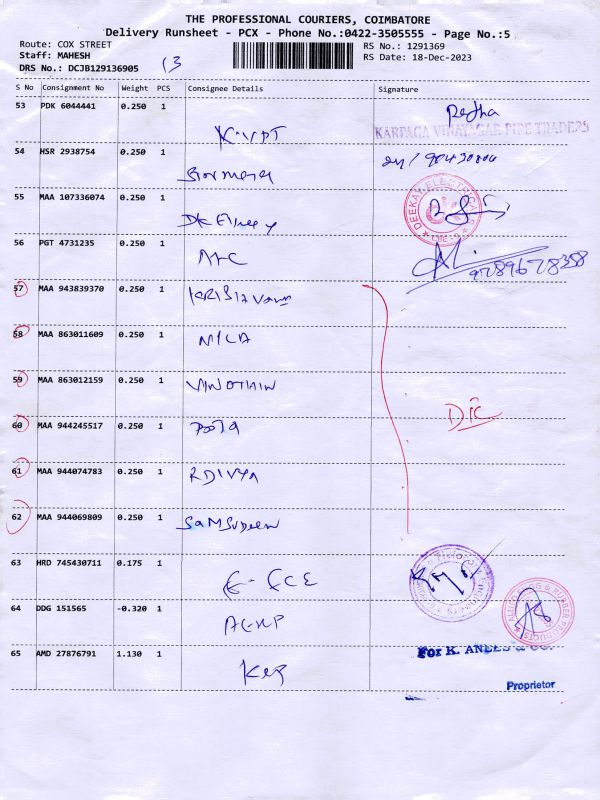 THE PROFESSIONAL COURIERS, COIMBATORE
Delivery Runsheet - PCX - Phone No.:0422-3505555 - Page No.:5
Route: COX STREET
RS No.: 1291369
Staff: MAHESH
RS Date: 18-Dec-2023
DRS No.: DCJB129136905
13
S No Consignment No Weight PCS Consignee Details Signature
53 PDK 6044441 0.250 1 K.VPT
KARPAGA VINAYAGAR PIPE TRADERS
54 HSR 2938754 0.250 1
55 MAA 107336074 0.250 1
DEEKAY ELECTRICALS
56 PGT 4731235 0.250 1
9789678358
57 MAA 943839370 0.250 1
58 MAA 863011609 0.250 1 NILA
59 MAA 863012159 0.250 1 VINOTHIN
60 MAA 944245517 0.250 1 POOJA
DIC
61 MAA 944074783 0.250 1 R DIVYA
62 MAA 944069809 0.250 1 SAMSUDEEN
63 HRD 745430711 0.175 1
64 DDG 151565 -0.320 1
65 AMD 27876791 1.130 1
For K. ANEES & CO.
Proprietor